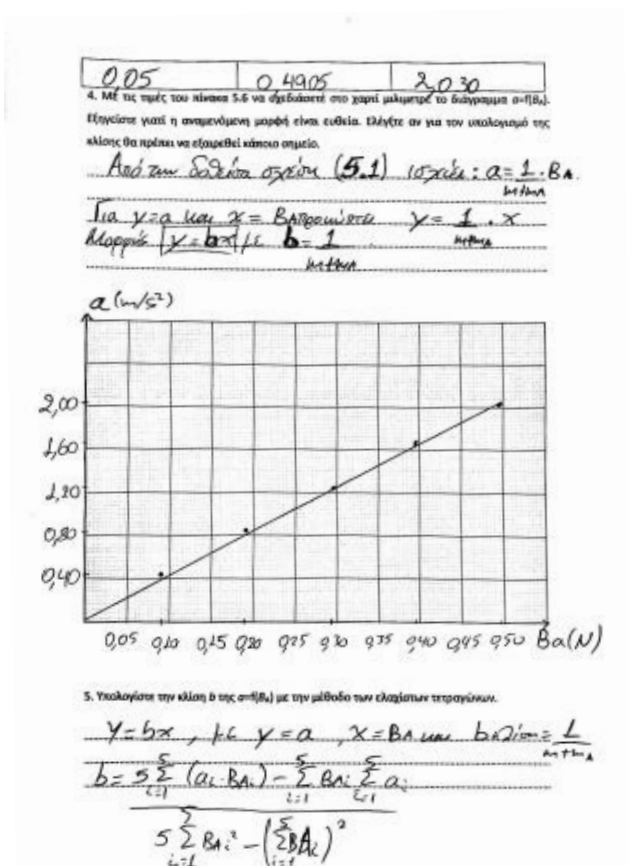 0,05 0,4905 2,030
4. Με τις τιμές του πίνακα 5.6 να σχεδιάσετε στο χαρτί μιλιμετρέ το διάγραμμα α=f(B_A).
Εξηγείστε γιατί η αναμενόμενη μορφή είναι ευθεία. Ελέγξτε αν για τον υπολογισμό της
κλίσης θα πρέπει να εξαιρεθεί κάποιο σημείο.
Από την δοθείσα σχέση (5.1) ισχύει: a = 1/(m+m_A) · B_A
Για y=a και x= B_A προκύπτει y = 1/(m+m_A) · x
Μορφής y = bx με b = 1/(m+m_A)
a (m/s²)
2,00
1,60
1,20
0,80
0,40
0,05 0,10 0,15 0,20 0,25 0,30 0,35 0,40 0,45 0,50 Ba(N)
5. Υπολογίστε την κλίση b της α=f(B_A) με την μέθοδο των ελαχίστων τετραγώνων.
y=bx, με y=a, x=B_A και b κλίση = 1/(m+m_A)
b = 5 Σ (a_i · B_Ai) - Σ B_Ai Σ a_i
5 Σ B_Ai² - (Σ B_Ai)²